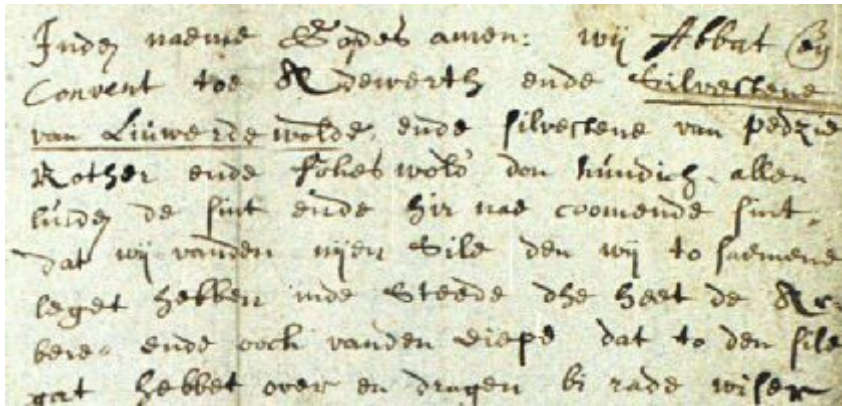 Inden naeme Godes amen: wij Abbat en
Convent toe Adewerth ende Silvestene
van Liuwerdewolde, ende silvestene van Pedzie
Rother ende Fokeswold don kundich allen
luiden de sint ende hir nae coomende sint,
dat wij vanden nijen Sile den wij to saemene
leget hebben inde Steede dhe heet de Ar-
bere ende och vanden Diepe dat to den sile
gat hebbet over en dragen bi rade wiser